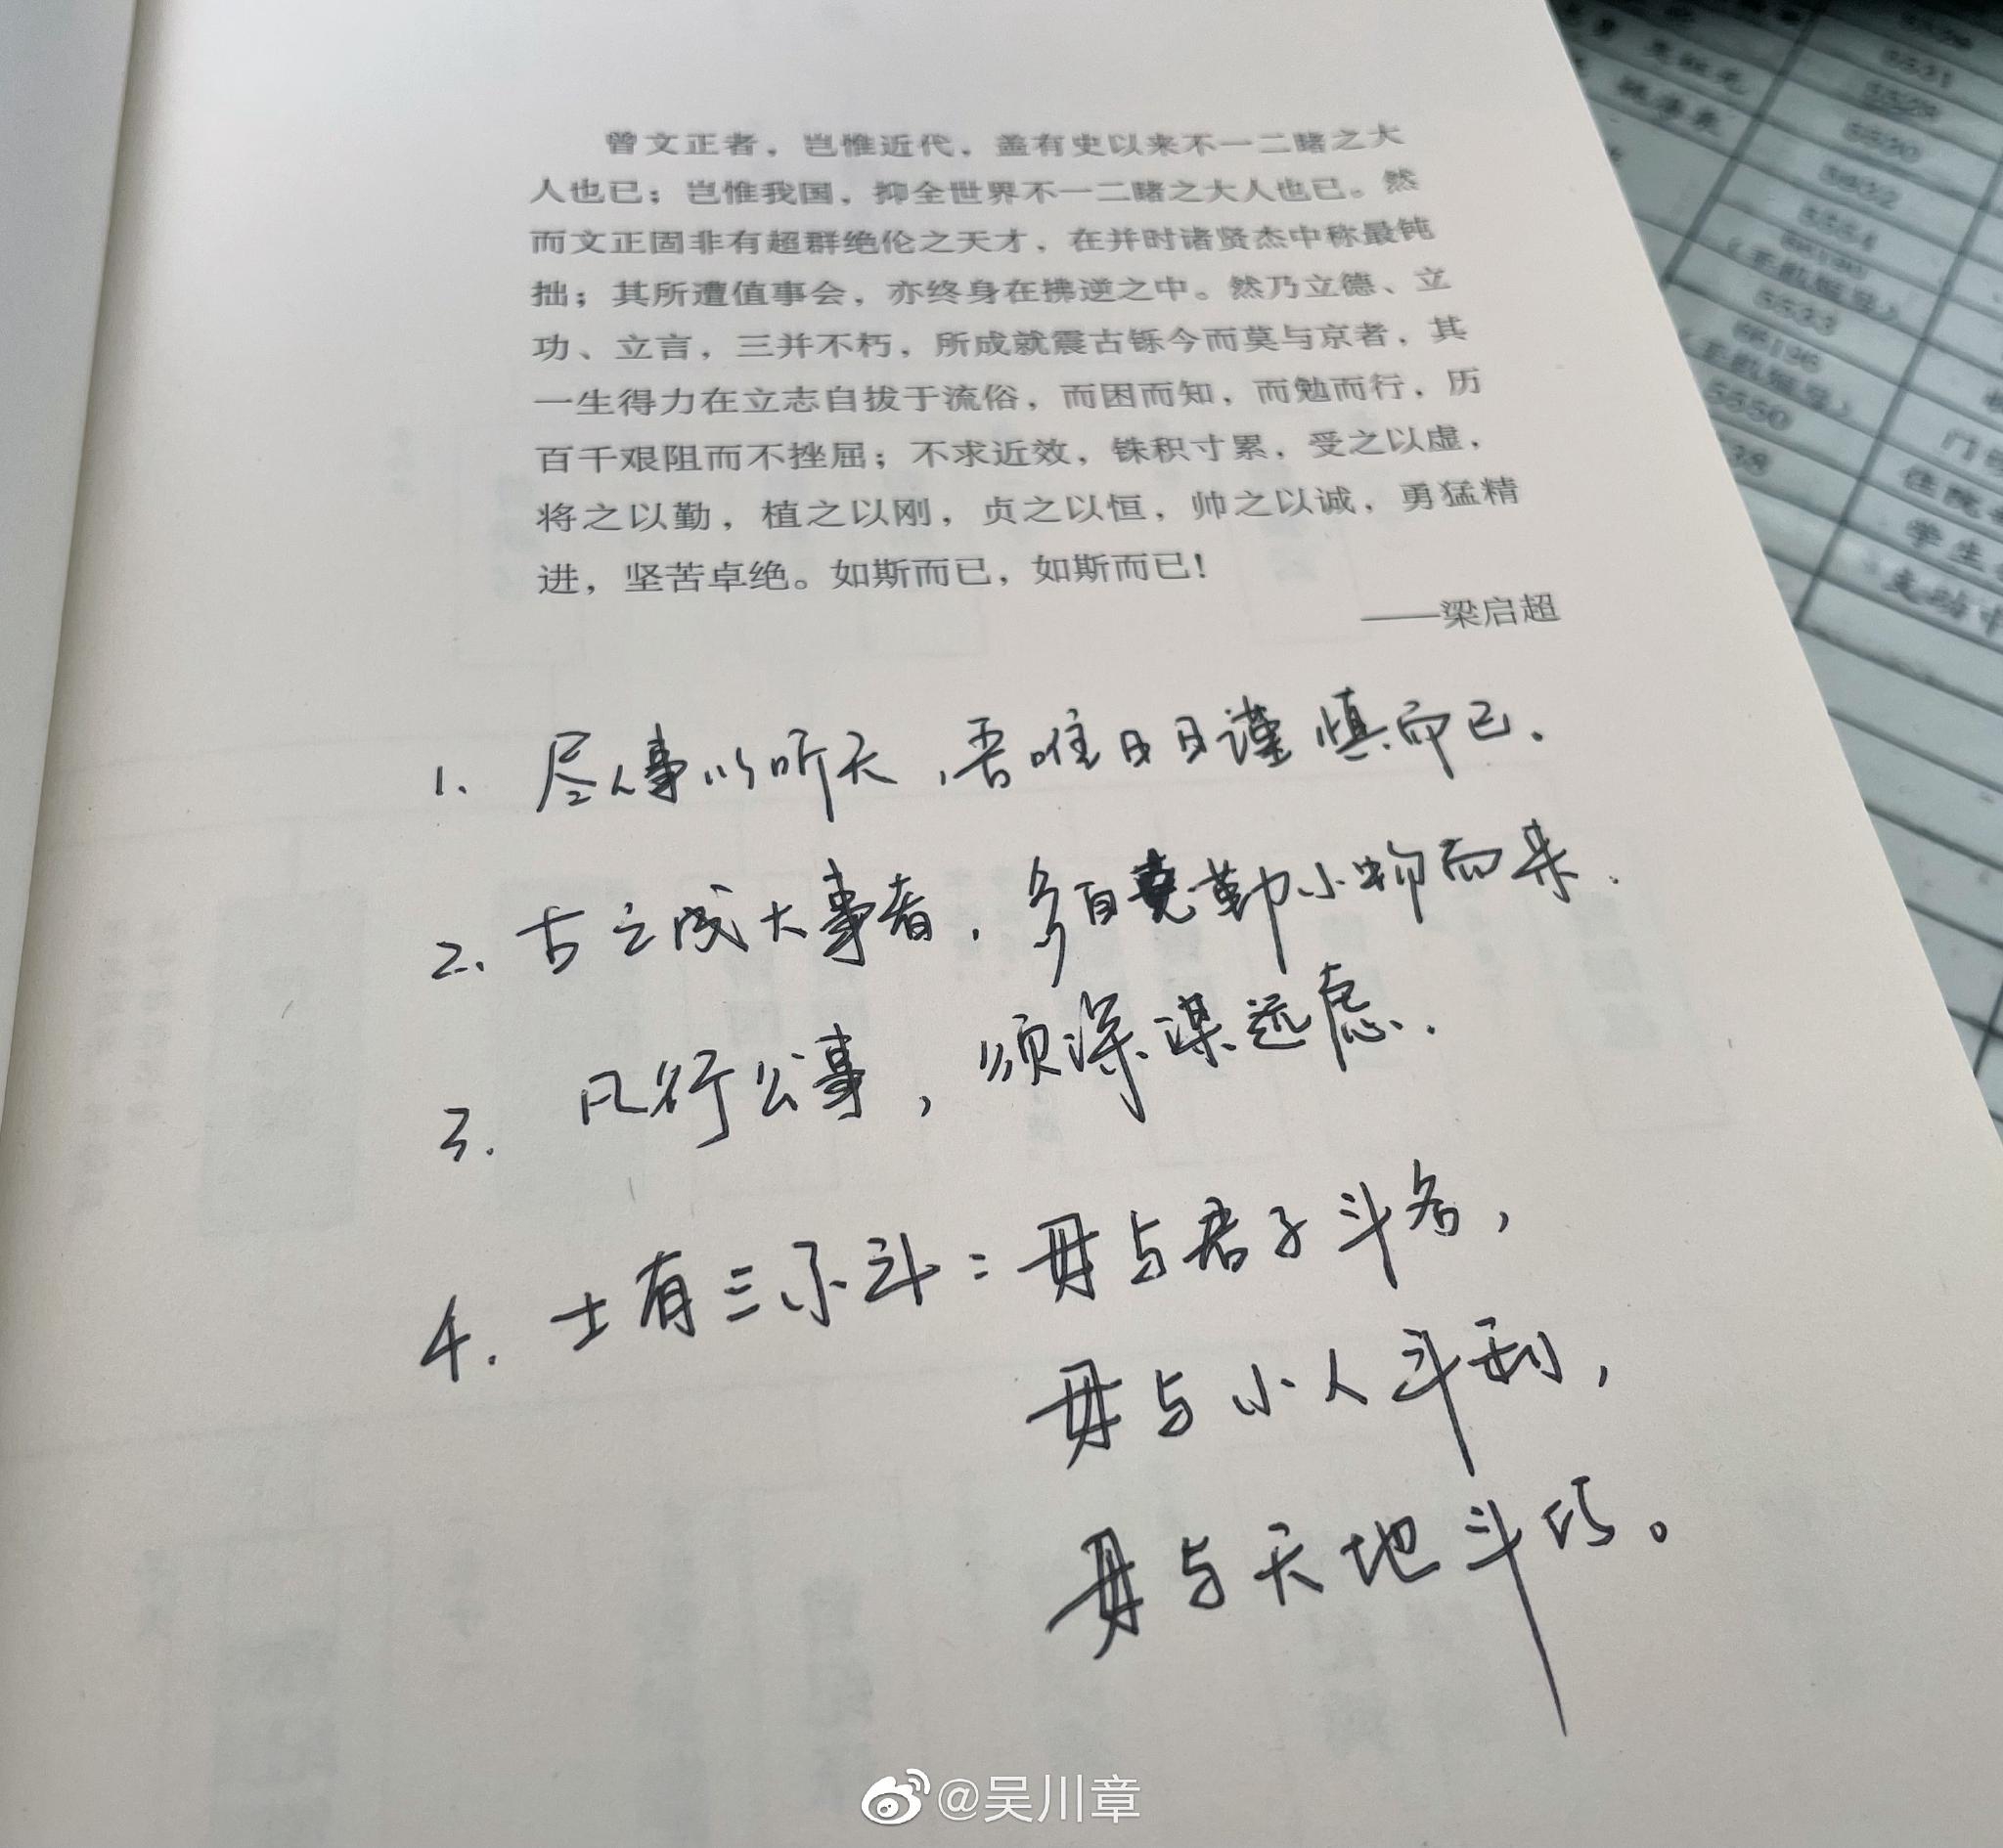 曾文正者，岂惟近代，盖有史以来不一二睹之大
人也已；岂惟我国，抑全世界不一二睹之大人也已。然
而文正固非有超群绝伦之天才，在并时诸贤杰中称最钝
拙；其所遭值事会，亦终身在拂逆之中。然乃立德、立
功、立言，三并不朽，所成就震古铄今而莫与京者，其
一生得力在立志自拔于流俗，而困而知，而勉而行，历
百千艰阻而不挫屈；不求近效，铢积寸累，受之以虚，
将之以勤，植之以刚，贞之以恒，帅之以诚，勇猛精
进，坚苦卓绝。如斯而已，如斯而已！
——梁启超
1. 尽人事以听天，吾唯日日谨慎而已.
2. 古之成大事者，多自克勤小物而来.
3. 凡行公事，须深谋远虑.
4. 士有三不斗：毋与君子斗名，
毋与小人斗利，
毋与天地斗巧。
5531
5530
5532
5534
5533
5550
38
@吴川章